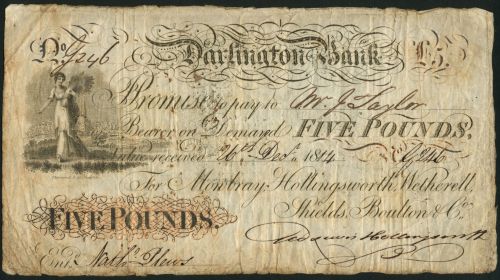 No. G246 Darlington Bank £5.
I Promise to pay to Mr. J. Taylor
Bearer on Demand FIVE POUNDS,
Value received 26th Decr. 1814 G246
For Mowbray, Hollingsworth, Wetherell,
Shields, Boulton & Co.
FIVE POUNDS.
Entd.